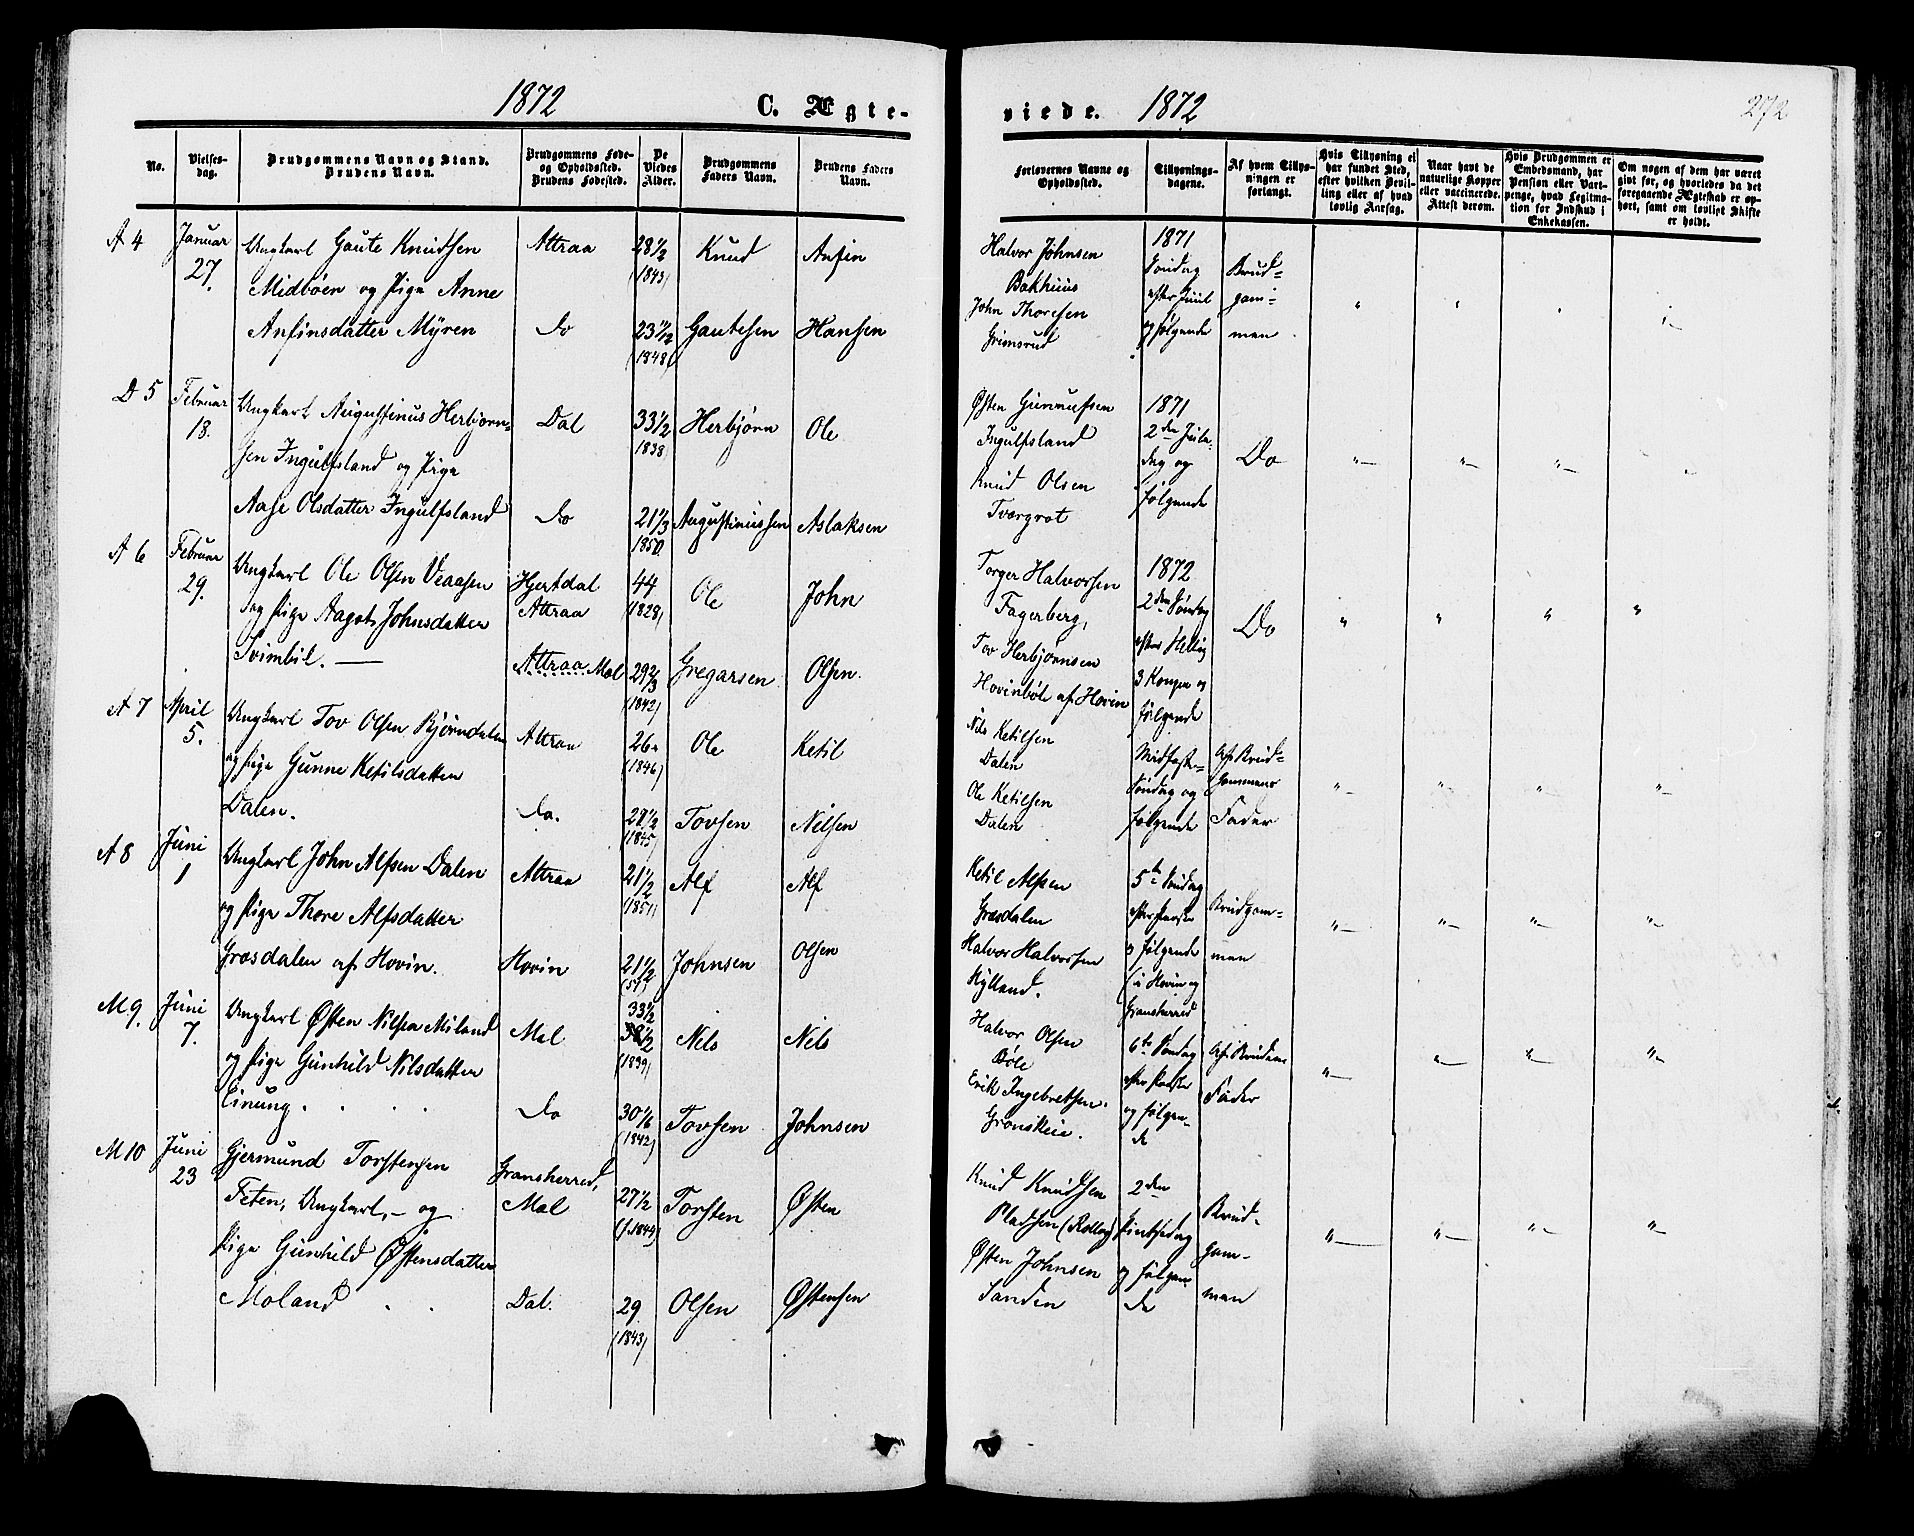 1872 C. Ægte-
No.
Vielses-
dag.
Brudgommens Navn og Stand.
Brudens Navn.
Brudgommens Føde-
og Opholdssted.
Brudens Fødested.
De
Viedes
Alder.
Brudgommens
Faders Navn.
Brudens Faders
Navn.
A 4 Januar 27.
Ungkarl Gaute Knudsen
Midbøen og Pige Anne
Anfinsdatter Myren
Attraa
Do
28 1/2
(1843)
23 1/2
(1848)
Knud
Gautesen
Anfin
Hansen
D 5 Februar 18.
Ungkarl Augustinus Herbjørn-
sen Ingulfsland og Pige
Aase Olsdatter Ingulfsland
Dal
Do
33 1/2
1838)
21 1/3
1850.
Herbjørn
Augustinussen
Ole
Aslaksen
A 6 Februar 29.
Ungkarl Ole Olsen Veaasen
og Pige Aagot Johnsdatter
Svimbil. —
Hjertdal
Attraa
Attraa Mæl
44
(1828)
29 2/3
(1842)
Ole
Gregarsen
John
Olsen.
A 7 April 5.
Ungkarl Tov Olsen Bjørndalen
og Pige Gunne Ketilsdatter
Dalen.
Attraa
Do.
26
(1846)
27 1/2
(1845)
Ole
Tovsen
Ketil
Nilsen
A 8 Juni 1
Ungkarl John Alfsen Dalen
og Pige Thore Alfsdatter
Græsdalen af Hovin.
Attraa
Hovin
21 1/2
(1851)
21 1/2
(51)
Alf
Johnsen
Alf
Olsen
M 9. Juni 7.
Ungkarl Østen Nilsen Miland
og Pige Gunhild Nilsdatter
Einung.
Mæl
Do
33 1/2
(1839)
30 1/6
(1842)
Nels
Tovsen
Nels
Johnsen
M 10 Juni 23
Gjermund Torstensen
Feten, Ungkarl, – og
Pige Gunhild Østensdatter
Moland
Gransherred,
Mæl
Dal.
27 1/2
29
(1843)
Torsten
Olsen
Østen
Østensen
viede. 1872
272
Forlovernes Navne og
Opholdssted.
Tillysnings-
dagene.
Af hvem Tillys-
ningen er
forlangt.
Hvis Tillysning ei
har fundet Sted,
efter hvilken Bevil-
ling eller af hvad
lovlig Aarsag.
Naar havt de
naturlige Kopper
eller vaccinerede.
Attest derom.
Hvis Brudgommen er
Embedsmand, har
Pension eller Vart-
penge, hvad Legitma-
tion for Indskud i
Enkekassen.
Om nogen af dem har været
gift før, og hvorledes da det
foregaaende Ægteskab er op-
hørt, samt om lovligt Skifte
er holdt.
Halvor Johnsen
Bakhuus
John Thoresen
Grimsrud
1871
Søndag
efter Juul
og følgende
Brud-
gom-
men
Østen Gunnufsen
Ingulfsland
Knud Olsen
Tvergrot
1871
2den Jule-
dag og
følgende
Do
Torger Halvorsen
Fagerberg,
Tov Herbjørnsen
Hovinbøle af Hovin
1872
2den Søndag
efter Hellig
3 Konger og
følgende
Do
Nils Ketilsen
Dalen
Ole Ketilsen
Dalen
Midfaste-
Søndag og
følgende
Af Brud-
gommens
Fader
Ketil Alfsen
Græsdalen
Halvor Halvorsen
Kylland.
5te Søndag
efter Paaske
og følgende
(i Hovin og
Gransherred
Brudgom-
men
Halvor Olsen
Bøle
Erik Ingebretsen
Grønskeie.
6te Søndag
efter Paaske
og følgen-
de
Af Brudens
Fader
Knud Knudsen
Pladsen (Rollag)
Østen Johnsen
Sanden
2den
Pintsedag
og følgen-
de
Brud-
gom-
men